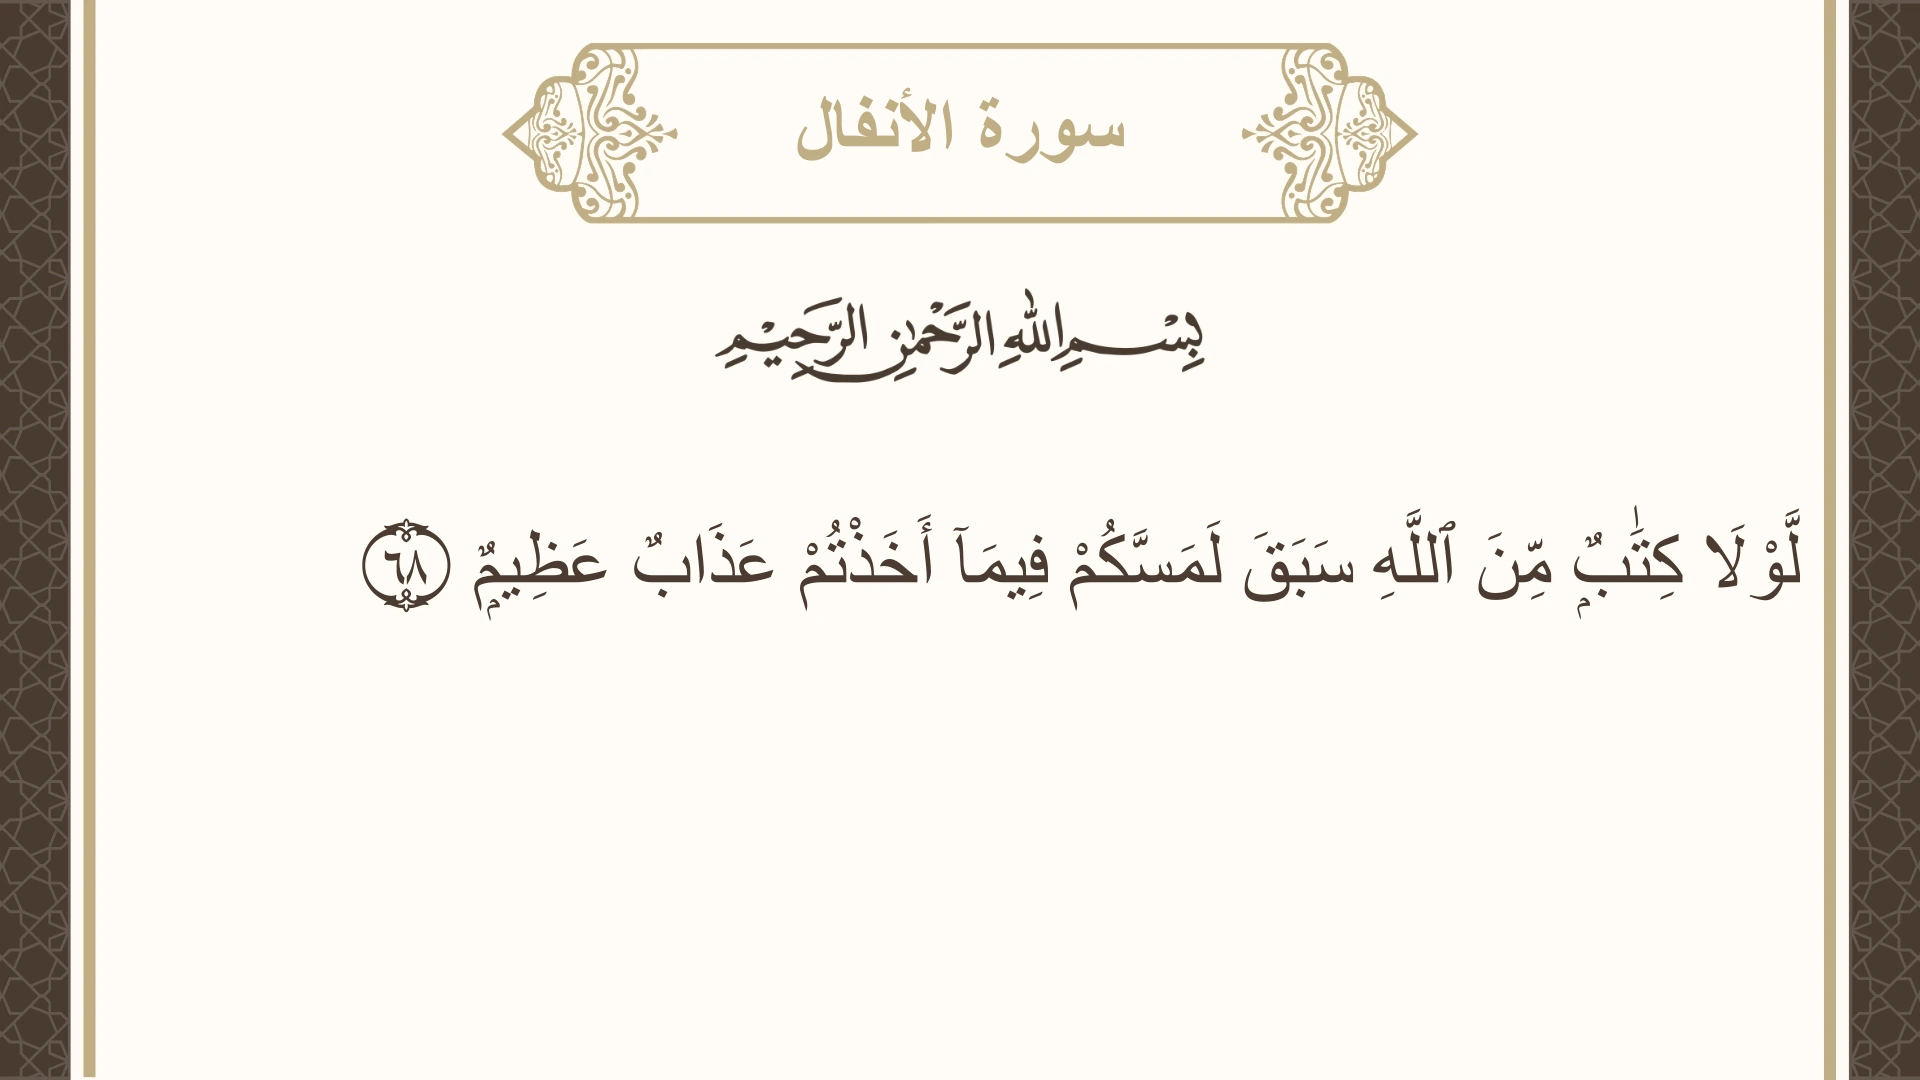 سورة الأنفال
بِسْمِ اللهِ الرَّحْمٰنِ الرَّحِيْمِ
لَّوْلَا كِتَـٰبٌۭ مِّنَ ٱللَّهِ سَبَقَ لَمَسَّكُمْ فِيمَآ أَخَذْتُمْ عَذَابٌ عَظِيمٌۭ ٦٨